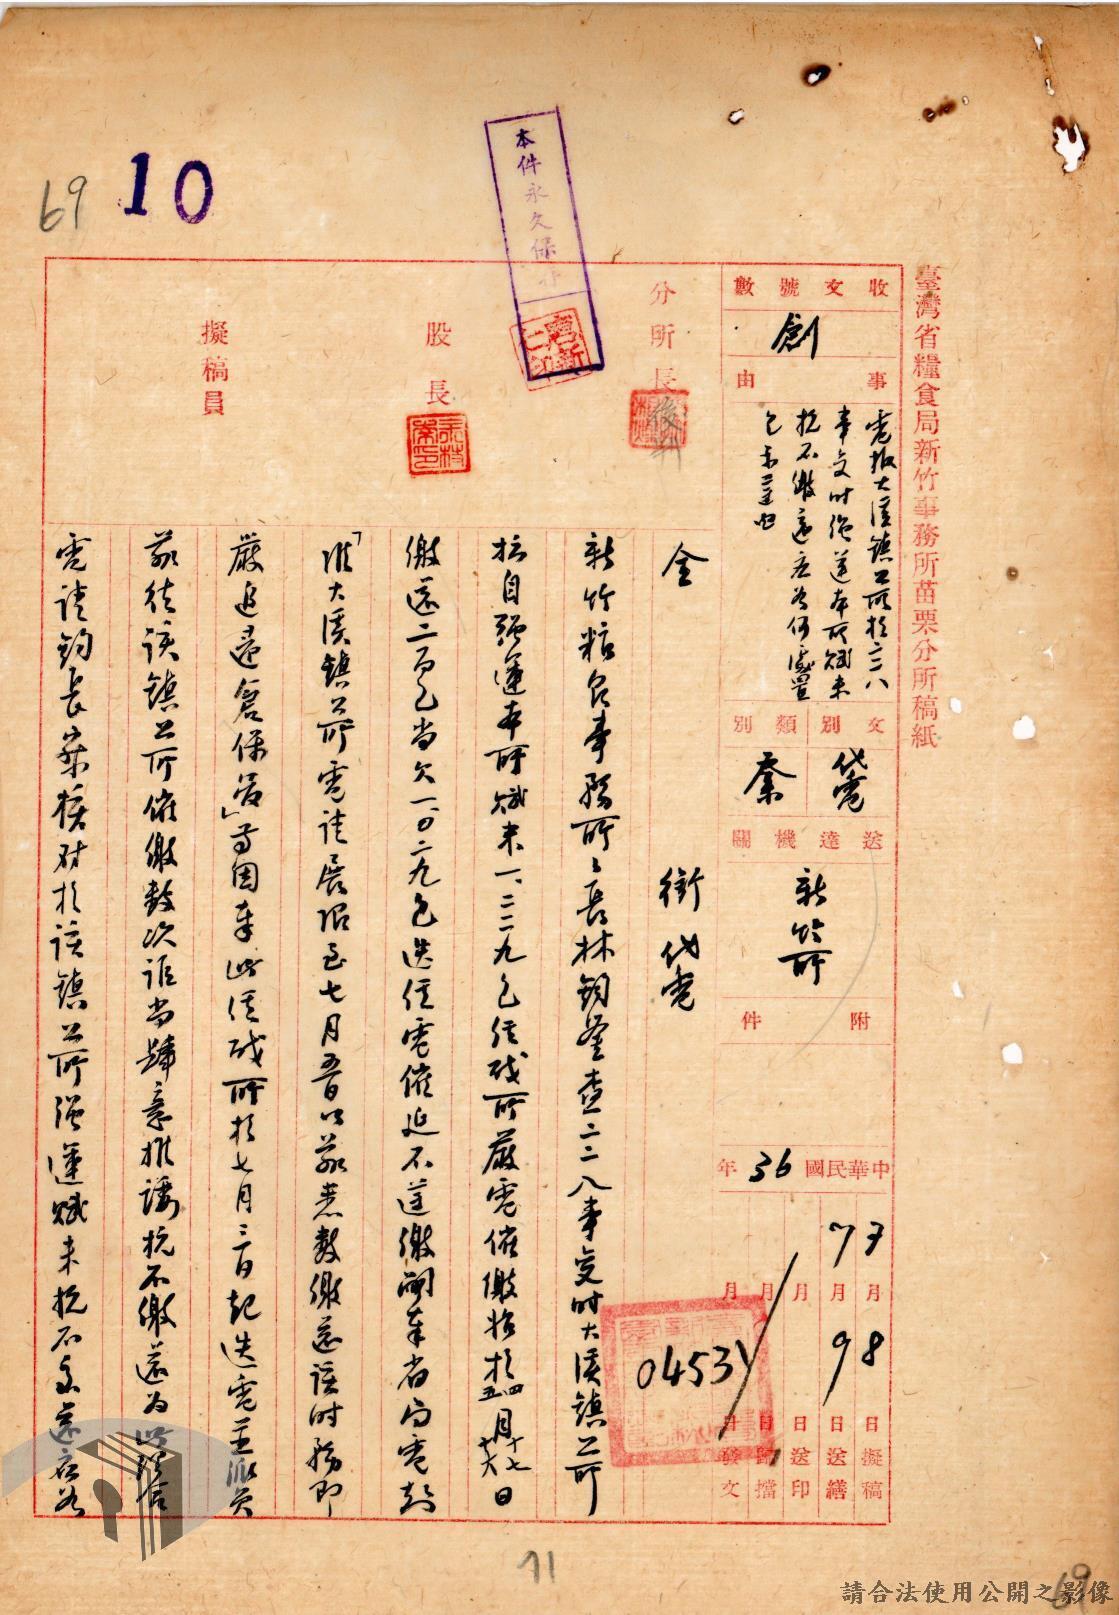 69 10
本件永久保存
臺灣省糧食局新竹事務所苗栗分所稿紙
收文號數
創
事由
電報大溪鎮公所於二二八
事變時强運本所賦米
抗不繳還應如何處置
乞示遵由
文別
代電
類別
送達機關
新竹所
附件
中華民國36年
7月8日擬稿
7月9日送繕
月日送印
月日歸擋
月日發文
04531
分所長
股長
擬稿員
全銜代電
新竹糧食事務所所長林鈞鑒查二二八事變時大溪鎮公所
擅自强運本所賦米一、二二九包經職所嚴電催繳始於
繳還二百包尚欠一、〇二九包迭經電催迄不遵繳嗣奉省局電
「准大溪鎮公所電請展限至七月五日以前悉數繳還該時務即
嚴追還倉保管」等因奉此經職所於七月三日起迭電並派員
前往該鎮公所催繳數次詎尚肆意推諉抗不繳還為此理合
電請鈞長察核對於該鎮公所强運賦米抗不交還應如
71
69
請合法使用公開之影像